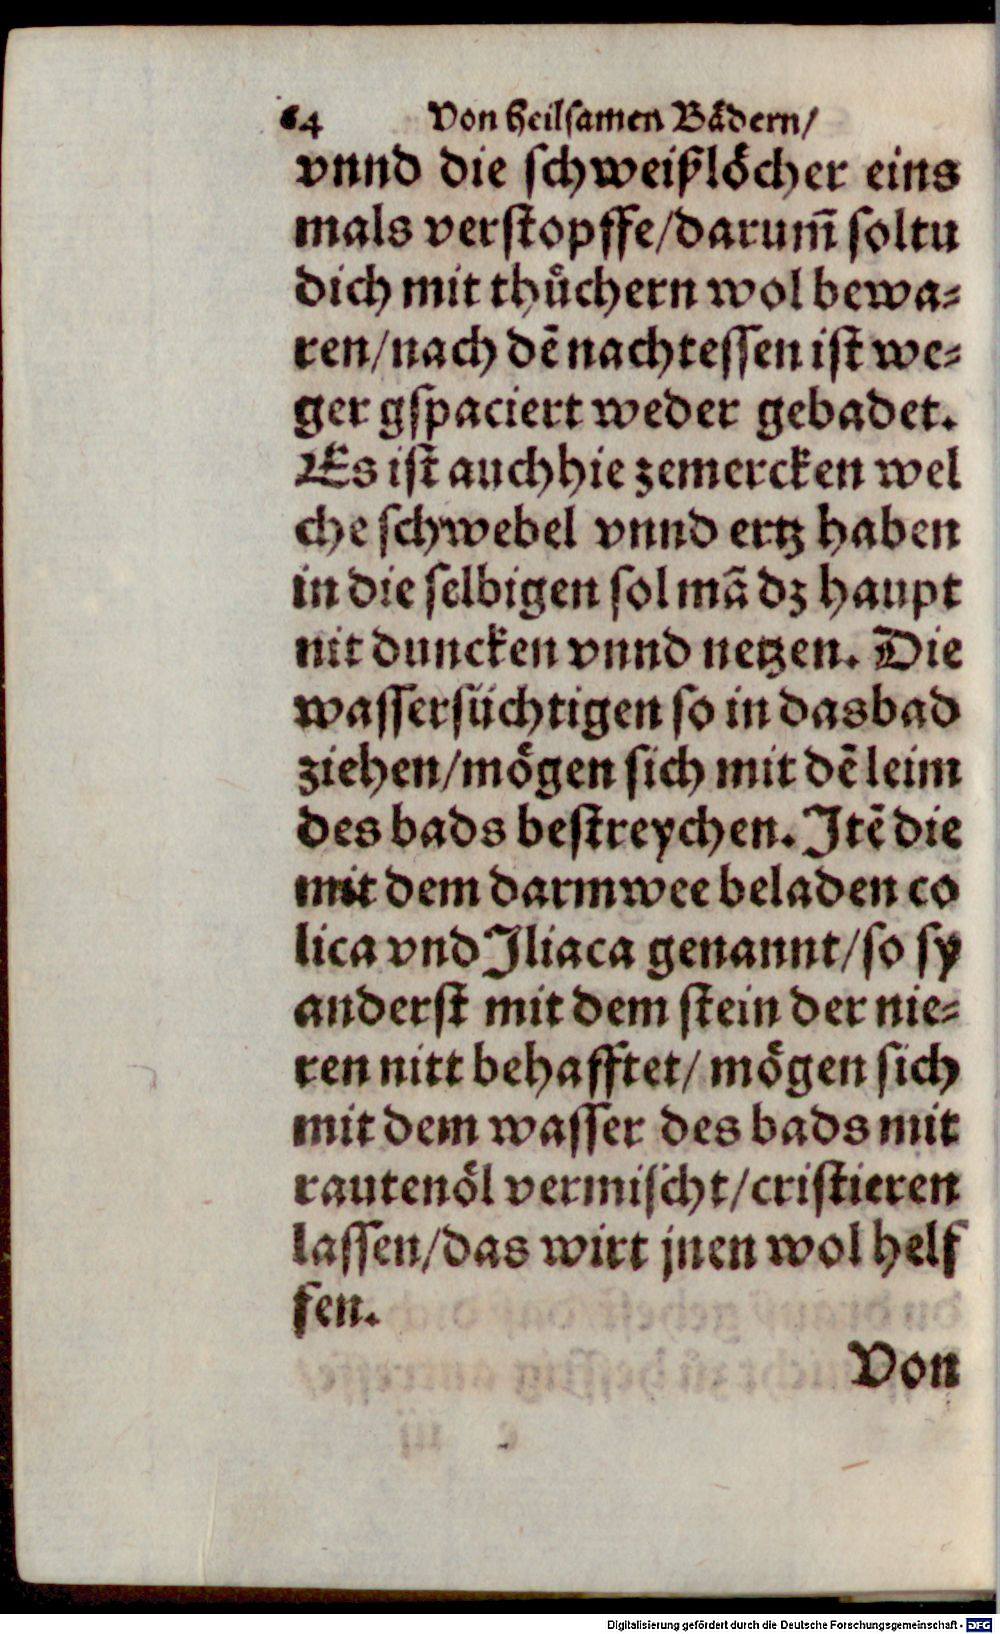 64 Von heilsamen Bädern/
vnnd die schweißlöcher eins
mals verstopffe/darum̄ soltu
dich mit thůchern wol bewa⸗
ren/nach dē nachtessen ist we⸗
ger gspaciert weder gebadet.
Es ist auch hie zemercken wel
che schwebel vnnd ertz haben
in die selbigen sol mā dz haupt
nit duncken vnnd netzen. Die
wassersüchtigen so in dasbad
ziehen/mögen sich mit dē leim
des bads bestreychen. Jtē die
mit dem darmwee beladen co
lica vnd Jliaca genannt/so sy
anderst mit dem stein der nie⸗
ren nitt behafftet/ mögen sich
mit dem wasser des bads mit
rautenöl vermischt/cristieren
lassen/das wirt jnen wol helf
fen.
Von
Digitalisierung gefördert durch die Deutsche Forschungsgemeinschaft - DFG